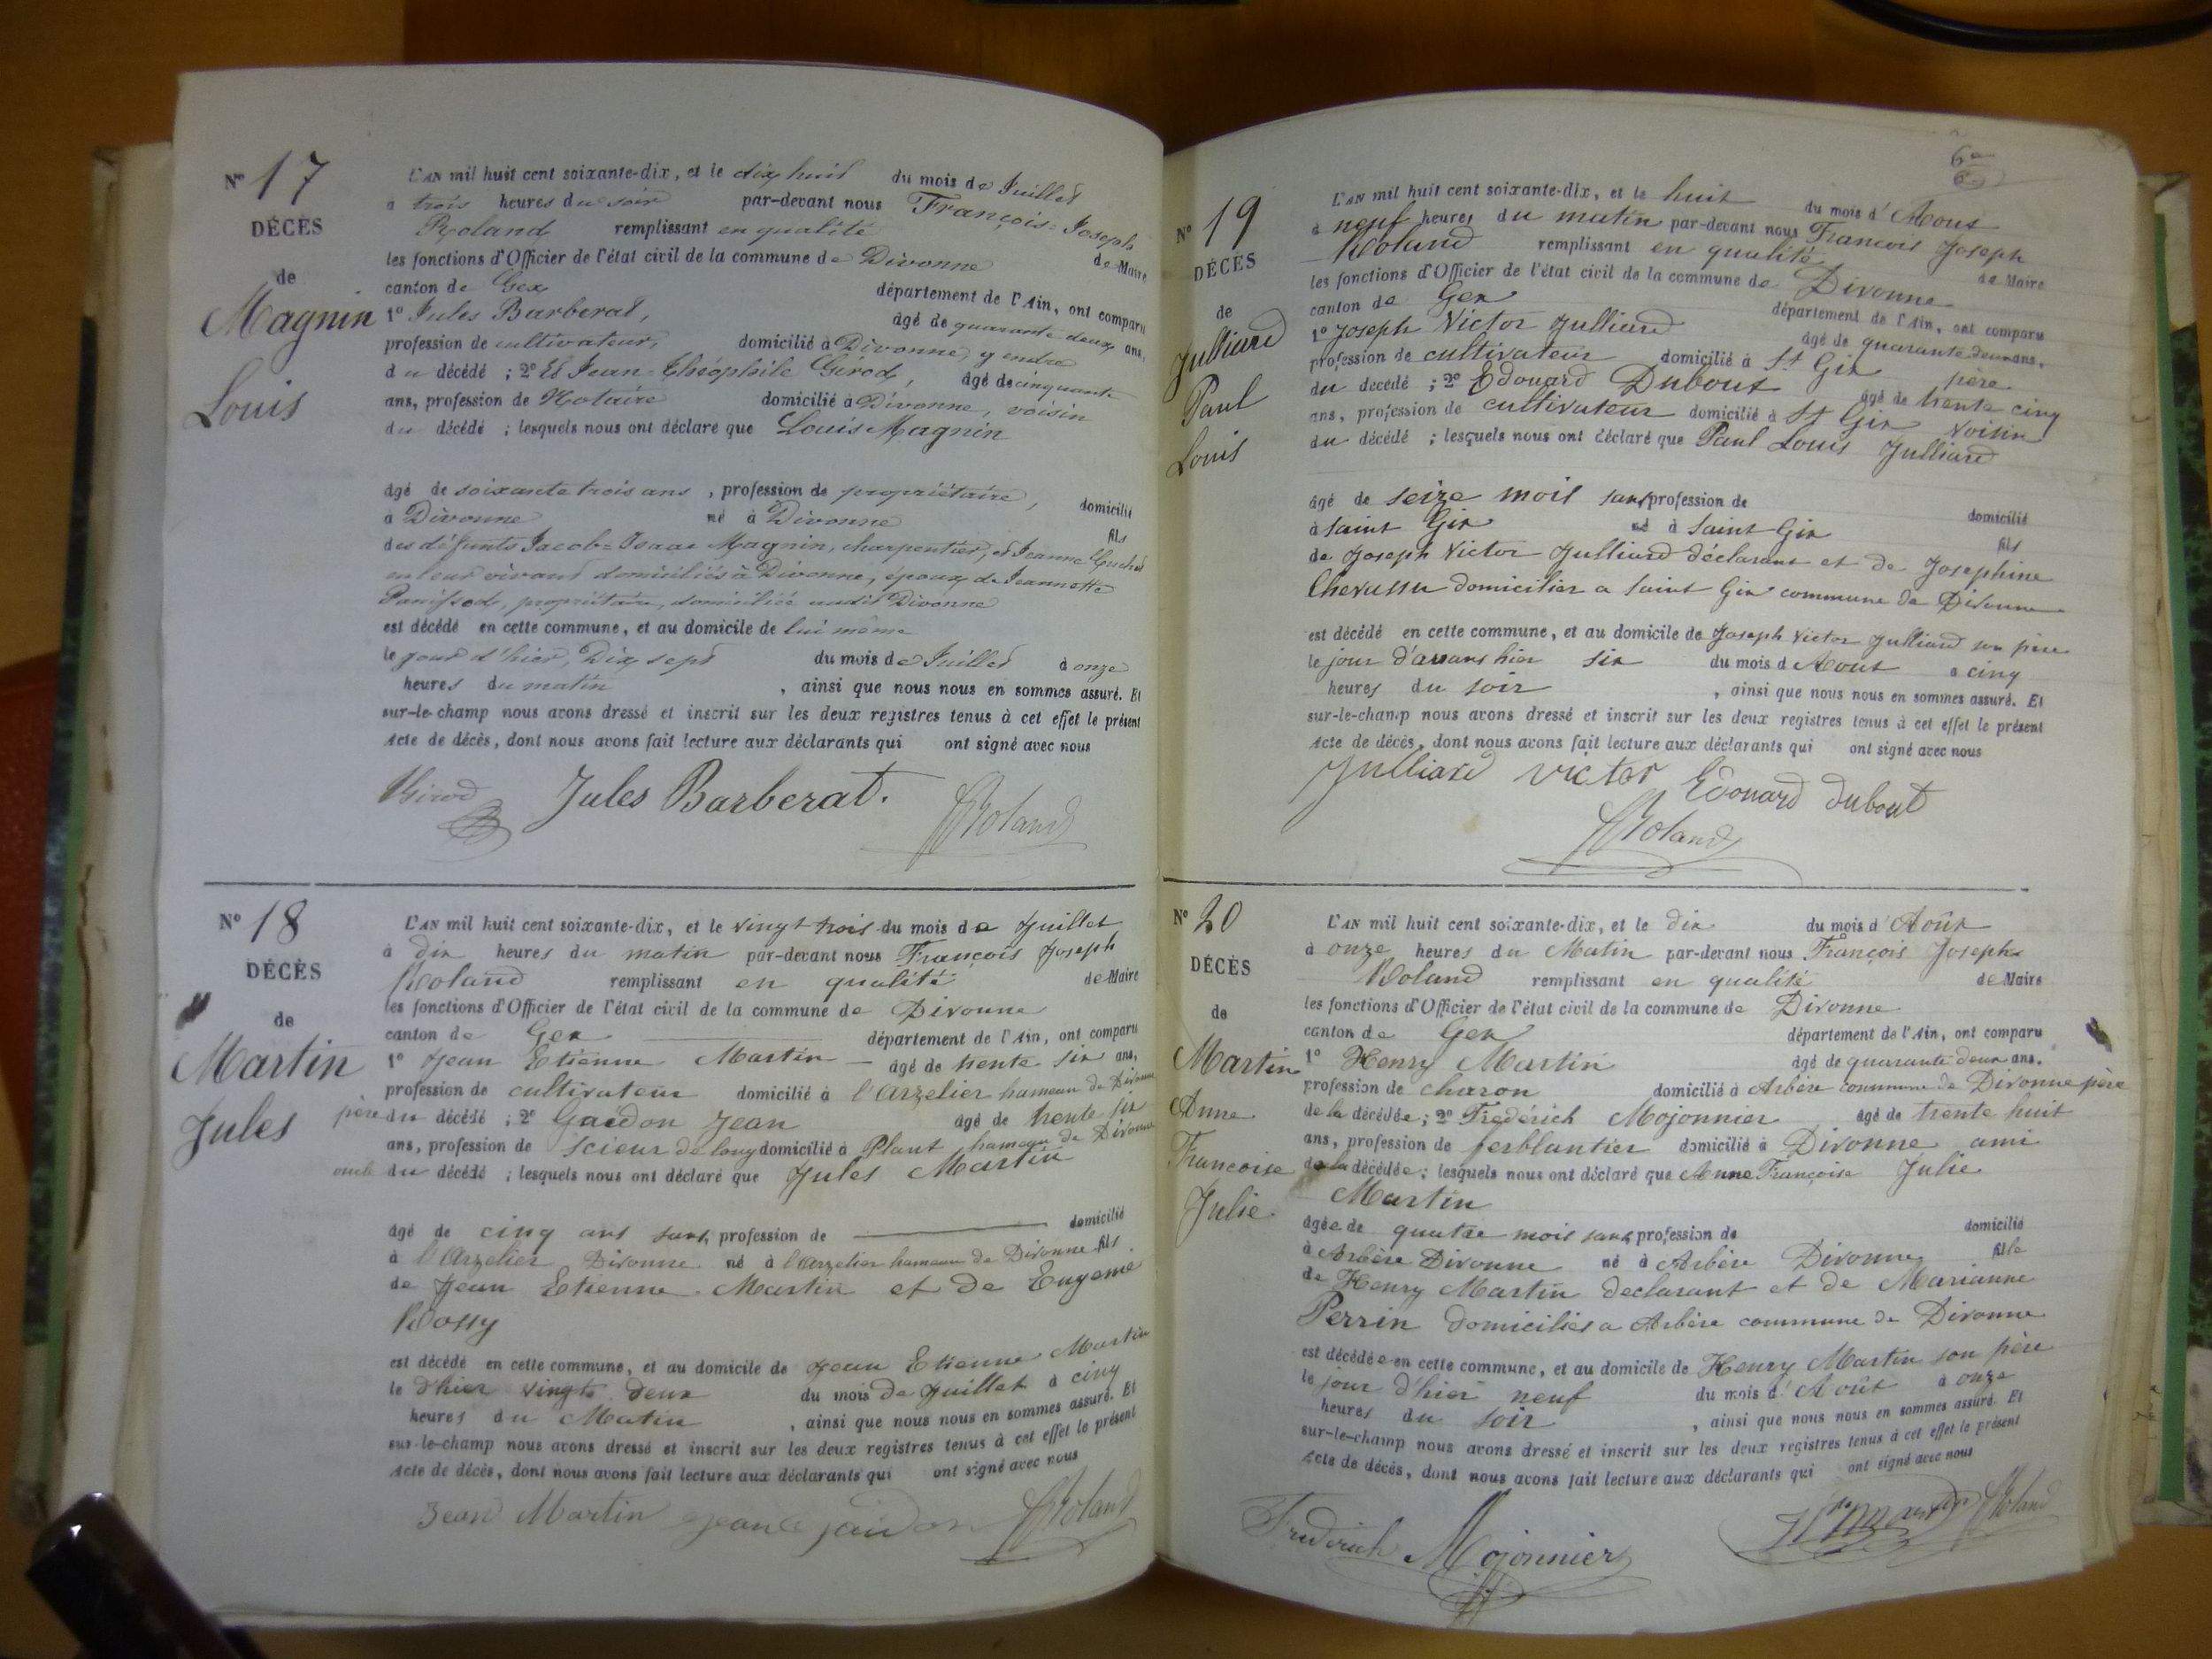 Nº 17
DÉCÈS
de
Magnin
Louis
L'AN mil huit cent soixante-dix, et le dix huit du mois de Juillet
à trois heures du soir par-devant nous François-Joseph
Roland remplissant en qualité de Maire
les fonctions d'Officier de l'état civil de la commune de Divonne
canton de Gex département de l'Ain, ont comparu
1º Jules Barberat, âgé de quarante deux ans,
profession de cultivateur, domicilié à Divonne, gendre
du décédé ; 2º Et Jean-Théophile Girod, âgé de cinquante
ans, profession de Notaire domicilié à Divonne, voisin
du décédé ; lesquels nous ont déclaré que Louis Magnin
âgé de soixante trois ans, profession de propriétaire, domicilié
à Divonne né à Divonne fils
des défunts Jacob-Isaac Magnin, charpentier, et Jeanne
en leur vivant domiciliés à Divonne, époux de Jeannette
Panissod, propriétaire, domiciliée audit Divonne
est décédé en cette commune, et au domicile de lui même
le jour d'hier, Dix sept du mois de Juillet à onze
heures du matin, ainsi que nous nous en sommes assuré. Et
sur-le-champ nous avons dressé et inscrit sur les deux registres tenus à cet effet le présent
Acte de décès, dont nous avons fait lecture aux déclarants qui ont signé avec nous
Girod Jules Barberat. Roland
Nº 18
DÉCÈS
de
Martin
Jules
L'AN mil huit cent soixante-dix, et le vingt trois du mois de Juillet
à dix heures du matin par-devant nous François Joseph
Roland remplissant en qualité de Maire
les fonctions d'Officier de l'état civil de la commune de Divonne
canton de Gex département de l'Ain, ont comparu
1º Jean Etienne Martin âgé de trente six ans,
profession de cultivateur domicilié à l'Arzelier hameau de Divonne
père du décédé ; 2º Gaidon Jean âgé de trente six
ans, profession de scieur de long domicilié à Plant hameau de Divonne
oncle du décédé ; lesquels nous ont déclaré que Jules Martin
âgé de cinq ans sans profession de domicilié
à l'Arzelier Divonne né à l'Arzelier hameau de Divonne fils
de Jean Etienne Martin et de Eugenie
Rossy
est décédé en cette commune, et au domicile de Jean Etienne Martin
le d'hier vingt deux du mois de Juillet à cinq
heures du Matin, ainsi que nous nous en sommes assuré. Et
sur-le-champ nous avons dressé et inscrit sur les deux registres tenus à cet effet le présent
Acte de décès, dont nous avons fait lecture aux déclarants qui ont signé avec nous
Jean Martin Jean gaidon Roland
6
Nº 19
DÉCÈS
de
Julliard
Paul
Louis
L'AN mil huit cent soixante-dix, et le huit du mois d'Aout
à neuf heures du matin par-devant nous Francois Joseph
Roland remplissant en qualité de Maire
les fonctions d'Officier de l'état civil de la commune de Divonne
canton de Gex département de l'Ain, ont comparu
1º Joseph Victor Julliard âgé de quarante deux ans,
profession de cultivateur domicilié à St Gix père
du décédé ; 2º Edouard Dubout âgé de trente cinq
ans, profession de cultivateur domicilié à St Gix voisin
du décédé ; lesquels nous ont déclaré que Paul Louis Julliard
âgé de seize mois sans profession de domicilié
à Saint Gix né à Saint-Gix fils
de Joseph Victor Julliard déclarant et de Josephine
Chevassu domicilier a Saint Gix commune de Divonne
est décédé en cette commune, et au domicile de Joseph Victor Julliard son père
le jour d'avans hier six du mois d'Aout à cinq
heures du soir, ainsi que nous nous en sommes assuré. Et
sur-le-champ nous avons dressé et inscrit sur les deux registres tenus à cet effet le présent
Acte de décès, dont nous avons fait lecture aux déclarants qui ont signé avec nous
Julliard victor Edouard dubout
Roland
Nº 20
DÉCÈS
de
Martin
Anne
Francoise
Julie
L'AN mil huit cent soixante-dix, et le dix du mois d'Août
à onze heures du Matin par-devant nous François Joseph
Roland remplissant en qualité de Maire
les fonctions d'Officier de l'état civil de la commune de Divonne
canton de Gex département de l'Ain, ont comparu
1º Henry Martin âgé de quarante deux ans.
profession de charon domicilié à Arbère commune de Divonne père
de la décédée ; 2º Frederich Mojonnier âgé de trente huit
ans, profession de ferblantier domicilié à Divonne ami
de la décédée ; lesquels nous ont déclaré que Anne Françoise Julie
Martin
âgée de quatre mois sans profession de domicilié
à Arbère Divonne né à Arbère Divonne fille
de Henry Martin declarant et de Marianne
Perrin domiciliés a Arbère commune de Divonne
est décédée en cette commune, et au domicile de Henry Martin son père
le jour d'hier neuf du mois d'Août à onze
heures du soir, ainsi que nous nous en sommes assuré. Et
sur-le-champ nous avons dressé et inscrit sur les deux registres tenus à cet effet le présent
Acte de décès, dont nous avons fait lecture aux déclarants qui ont signé avec nous
Frederich Mojonnier Hri Martin Roland